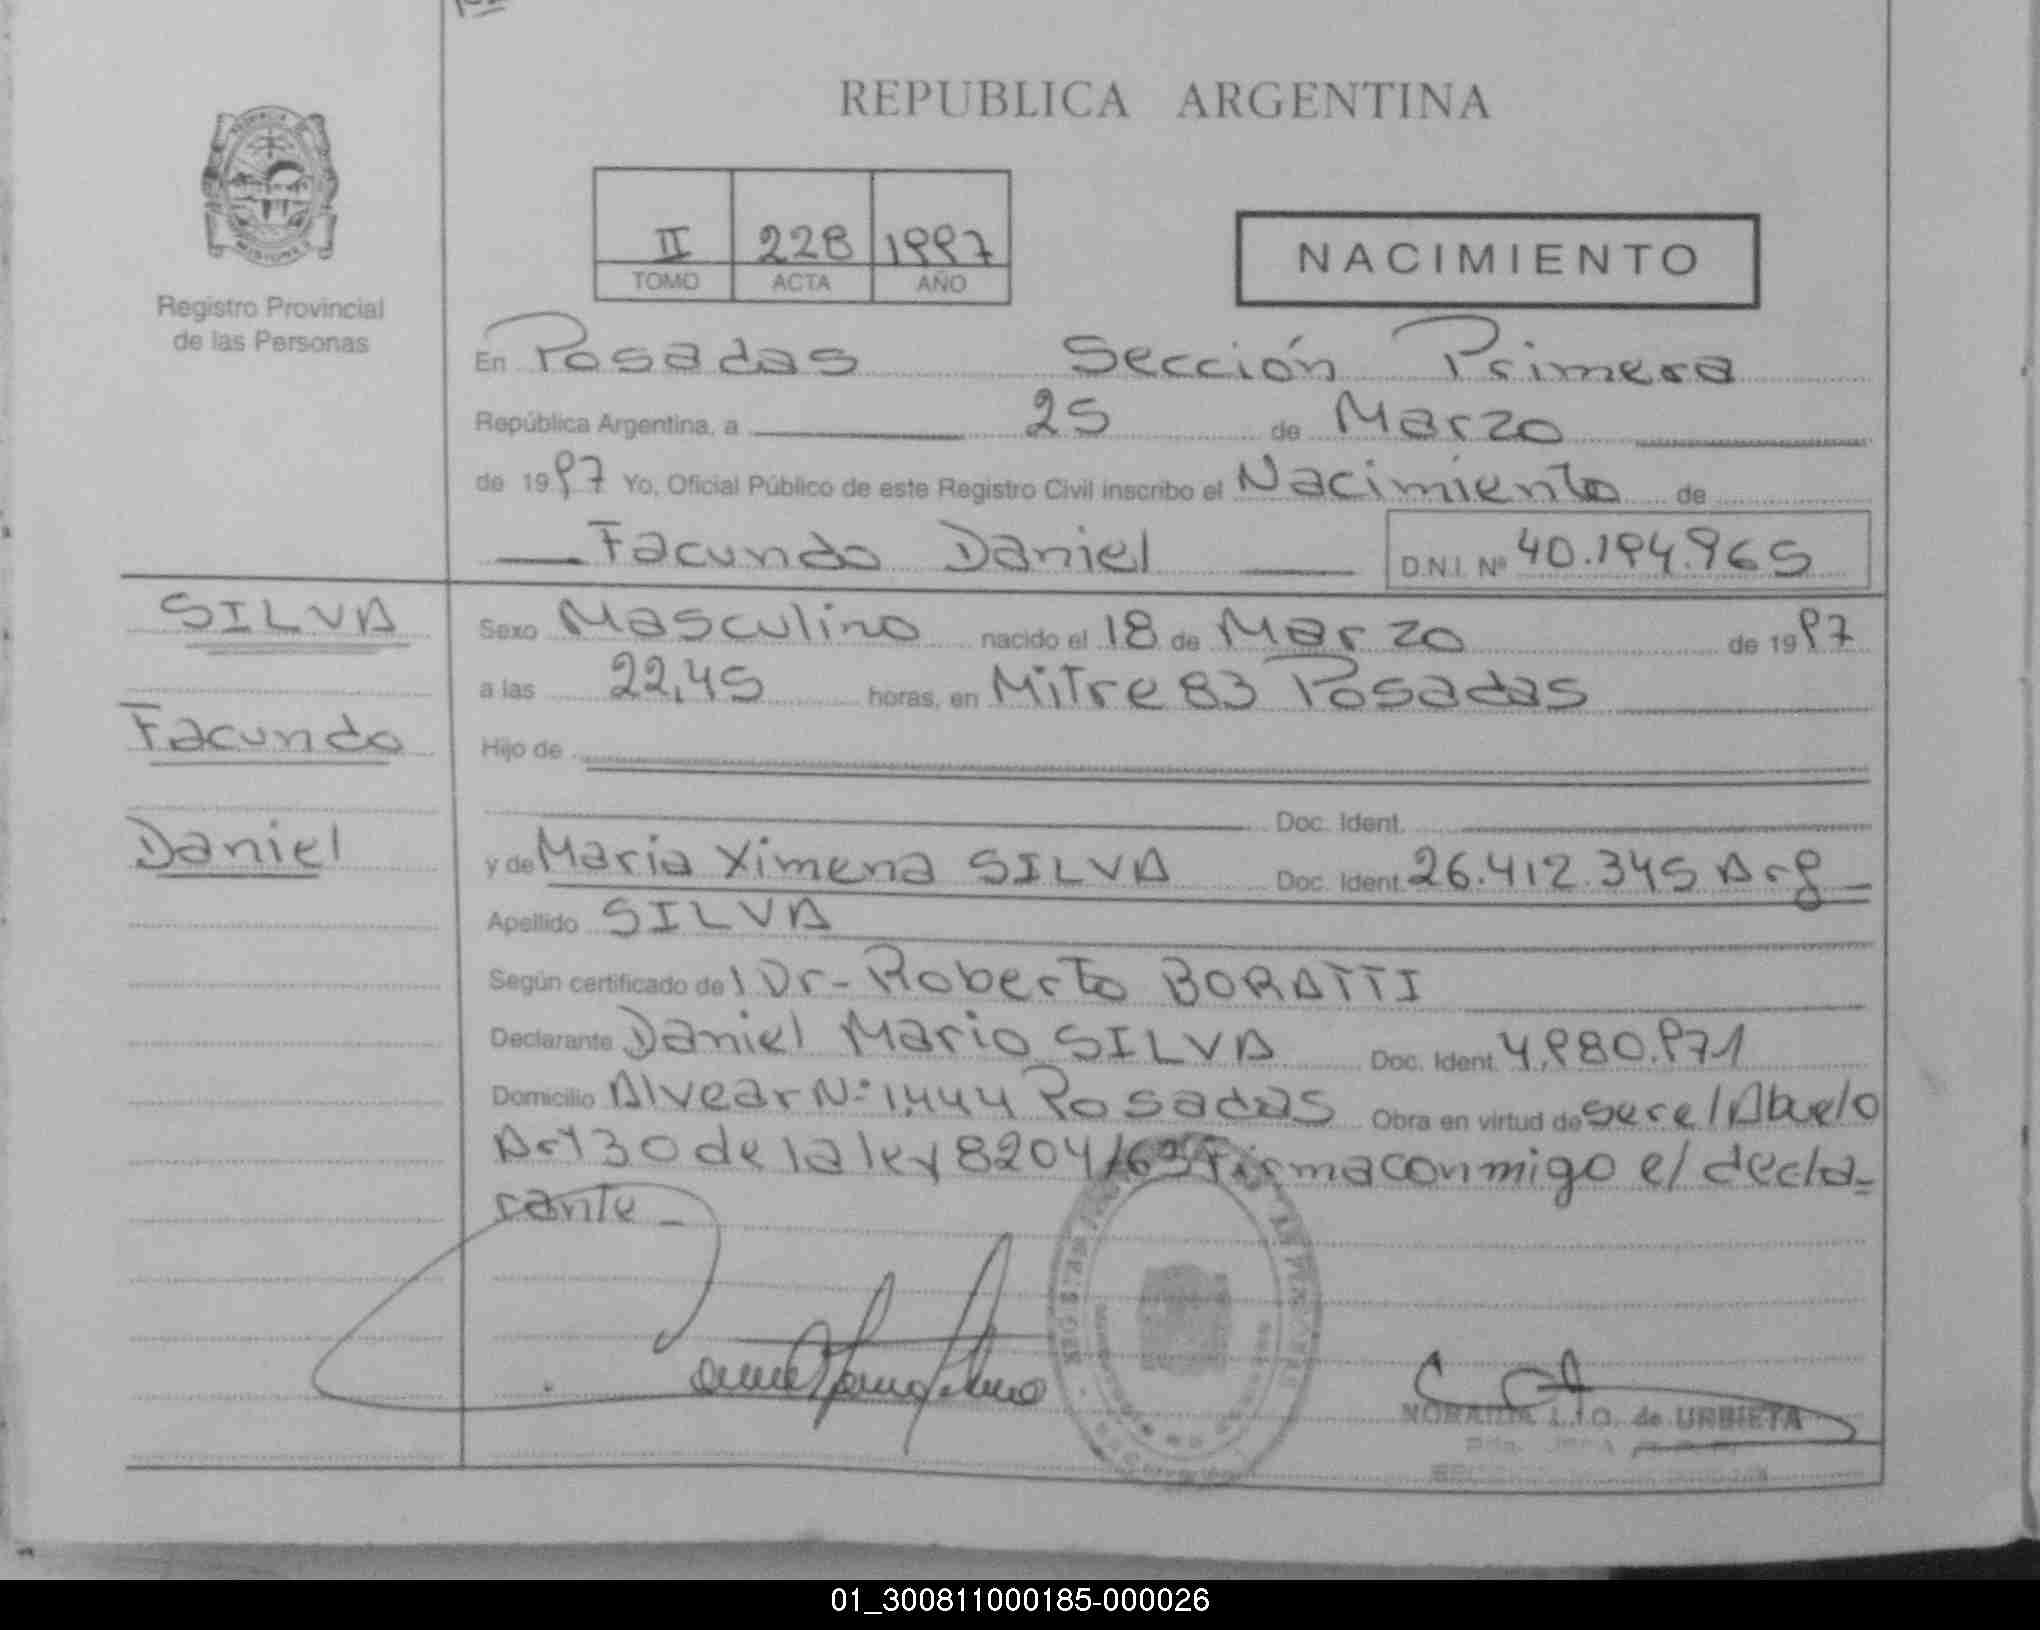 REPUBLICA ARGENTINA
II 228 1997
TOMO ACTA AÑO
NACIMIENTO
Registro Provincial
de las Personas
En Posadas Sección Primera
República Argentina, a 25 de Marzo
de 1997 Yo, Oficial Público de este Registro Civil inscribo el Nacimiento de
Facundo Daniel D.N.I. Nº 40.194.965
SILVA
Facundo
Daniel
Sexo Masculino nacido el 18 de Marzo de 1997
a las 22,45 horas, en Mitre 83 Posadas
Hijo de
Doc. Ident.
y de Maria Ximena SILVA Doc. Ident. 26.412.345 Arg
Apellido SILVA
Según certificado de l Dr- Roberto BORATTI
Declarante Daniel Mario SILVA Doc. Ident. 4.980.971
Domicilio Alvear Nº 1.444 Posadas Obra en virtud de ser el Abuelo
Art 30 de la ley 8204/63 Firma conmigo el decla=
rante
de URBIETA
01_300811000185-000026